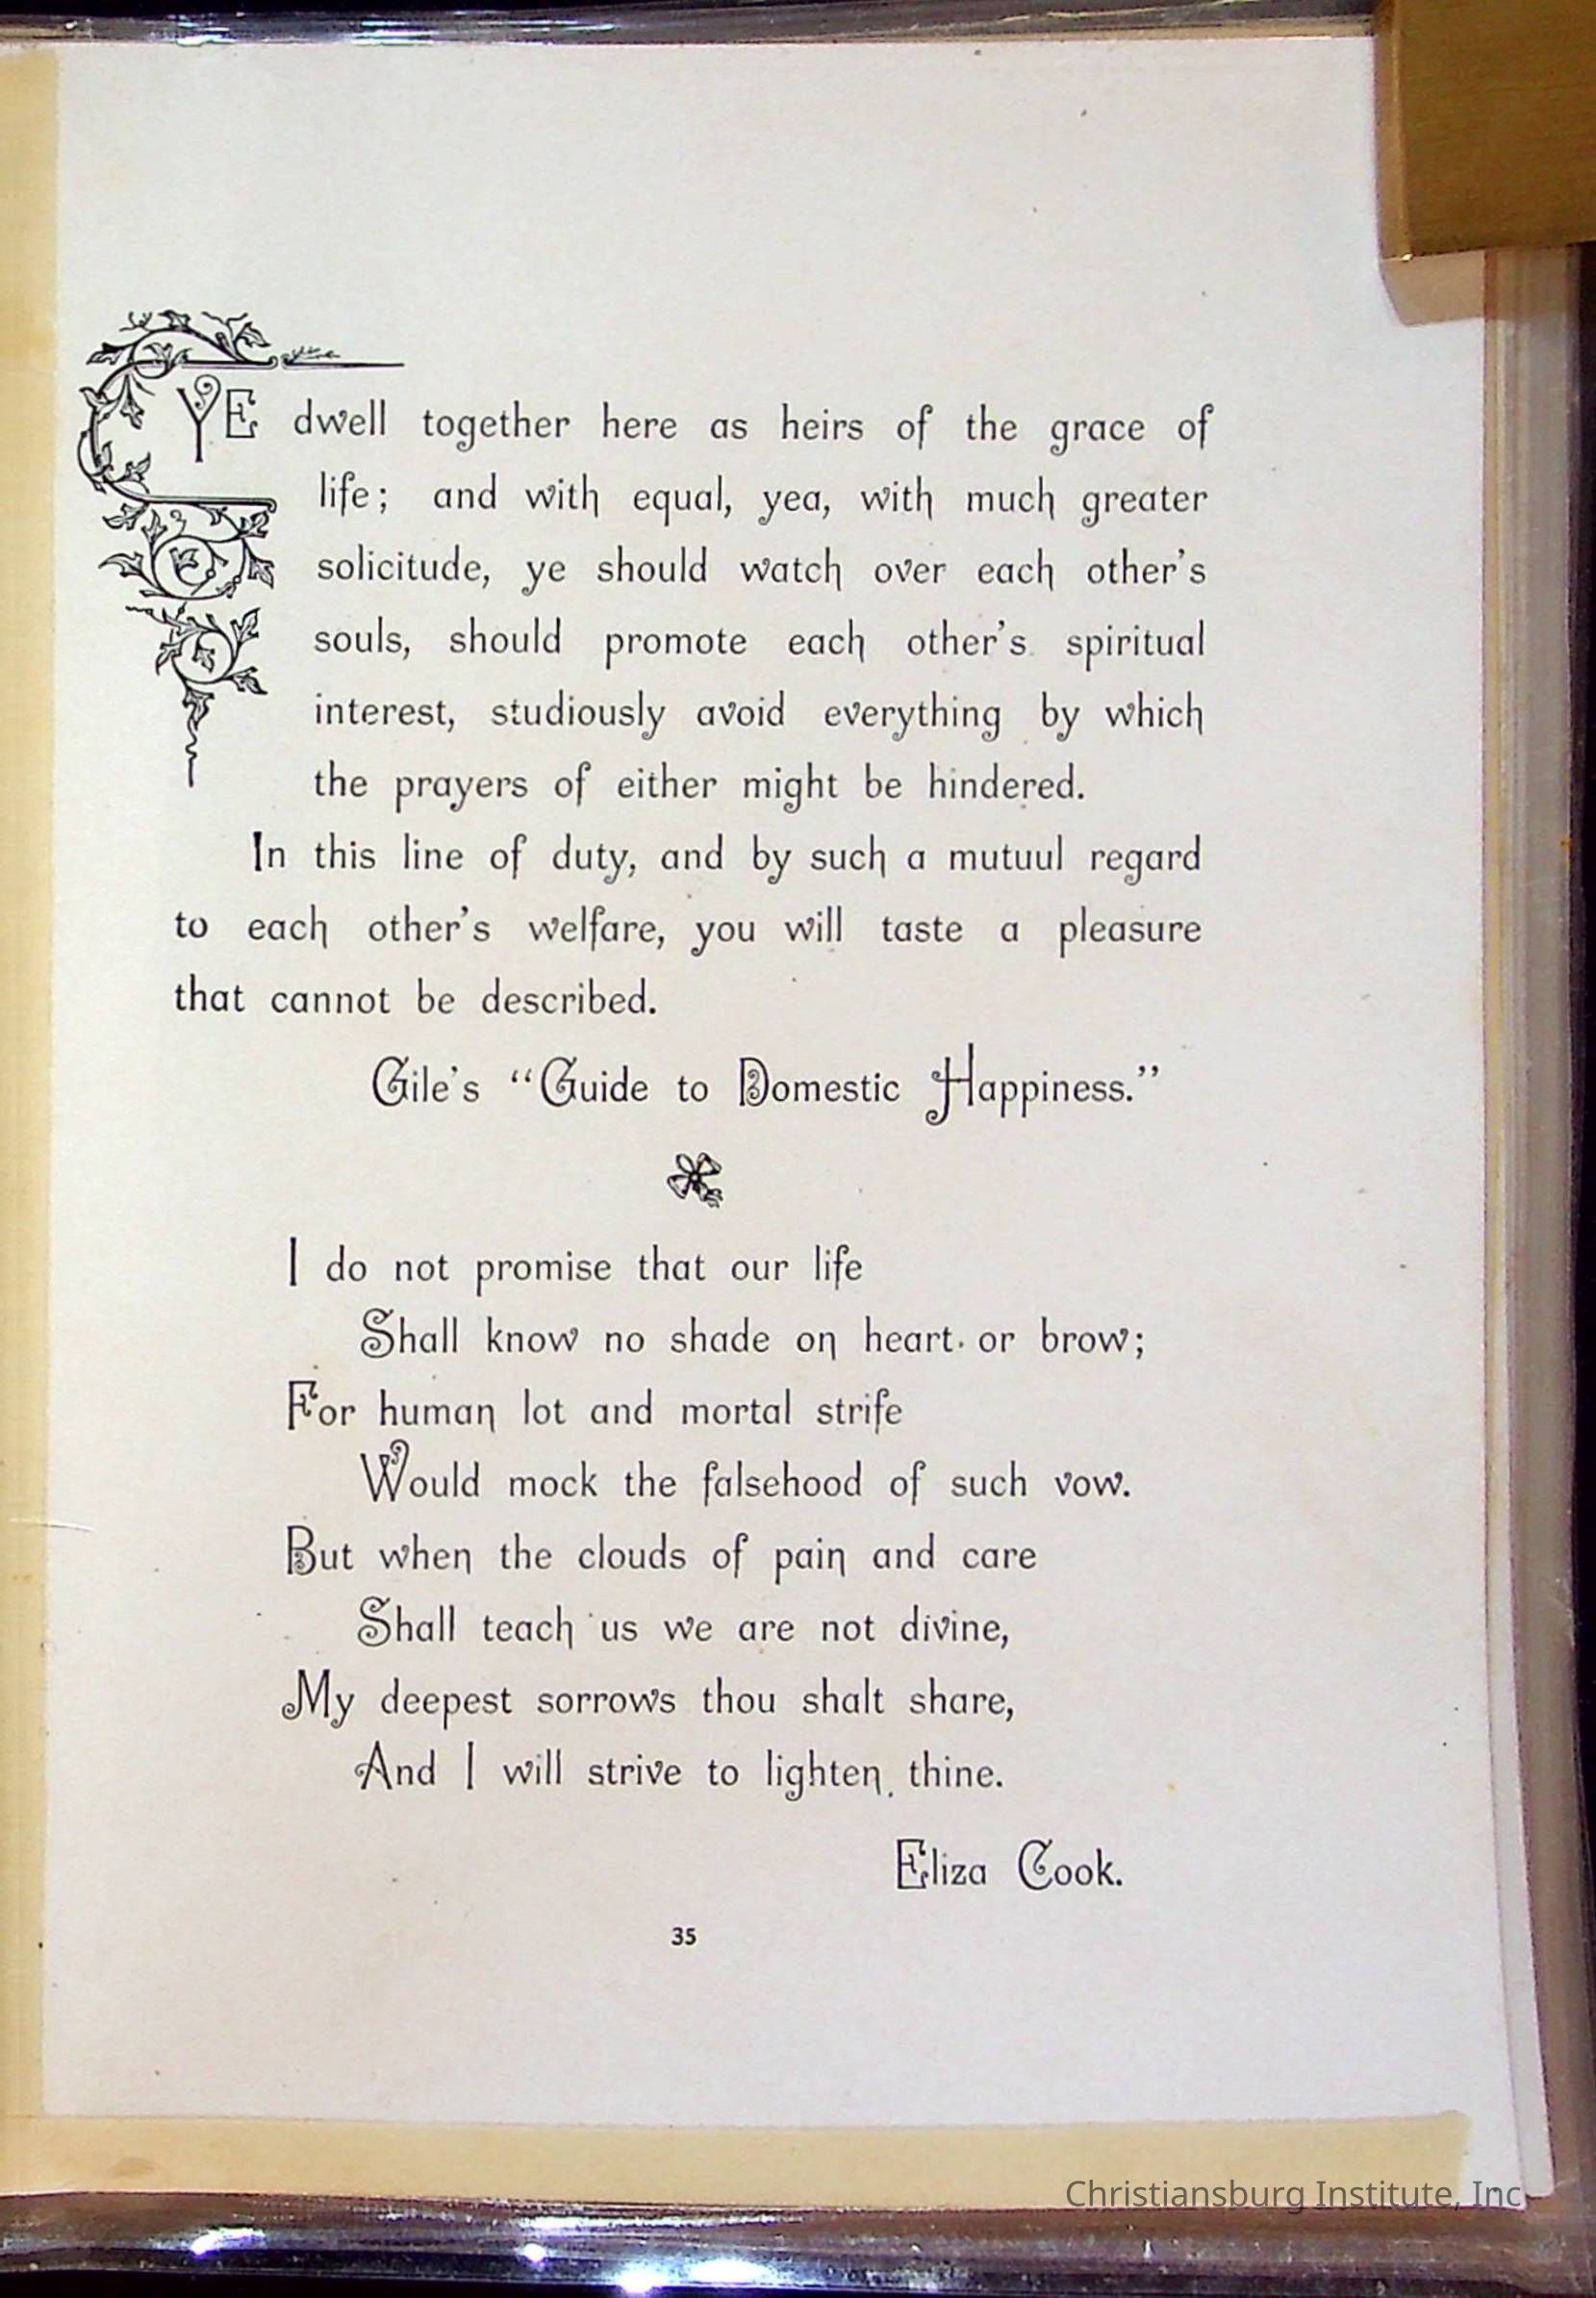 YE dwell together here as heirs of the grace of
life; and with equal, yea, with much greater
solicitude, ye should watch over each other's
souls, should promote each other's spiritual
interest, studiously avoid everything by which
the prayers of either might be hindered.
In this line of duty, and by such a mutuul regard
to each other's welfare, you will taste a pleasure
that cannot be described.
Gile's “Guide to Domestic Happiness.”
I do not promise that our life
Shall know no shade on heart or brow;
For human lot and mortal strife
Would mock the falsehood of such vow.
But when the clouds of pain and care
Shall teach us we are not divine,
My deepest sorrows thou shalt share,
And I will strive to lighten thine.
Eliza Cook.
35
Christiansburg Institute, Inc